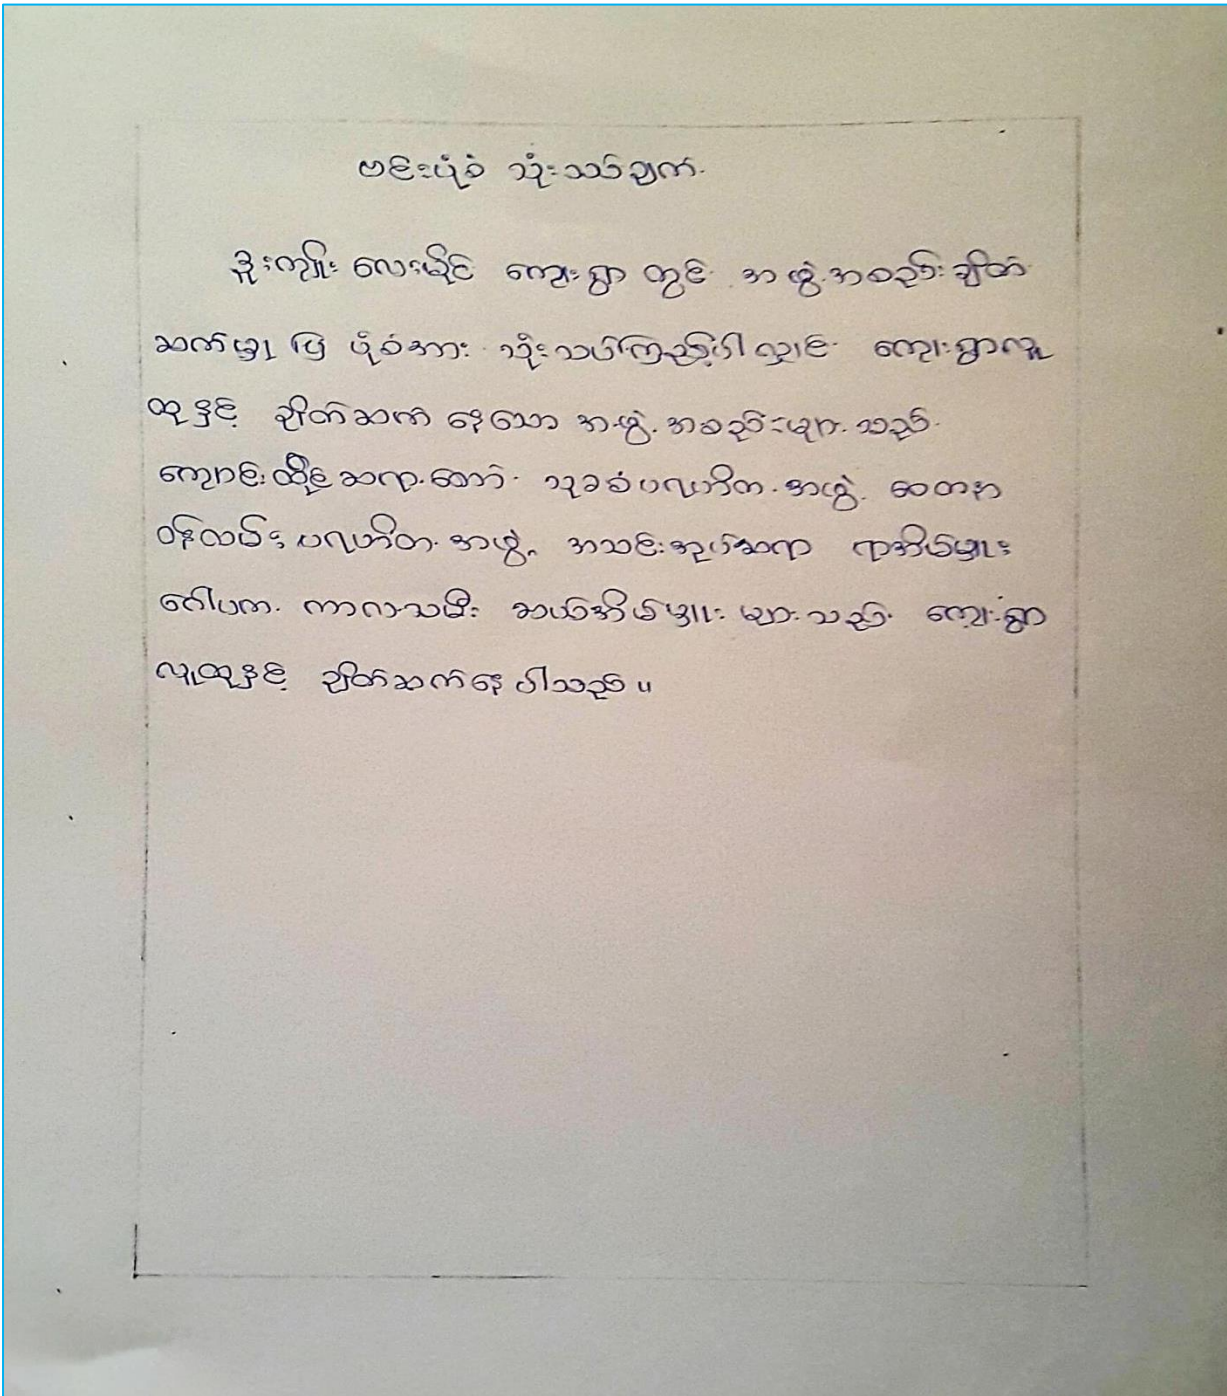 ဗင်းပုံစံ သုံးသပ်ချက်
ဒူးကျိုး လေးမိုင် ကျေးရွာ တွင် အဖွဲ့အစည်း ချိတ်
ဆက်မှု ပြ ပုံစံအား သုံးသပ်ကြည့်ပါလျှင် ကျေးရွာလူ
ထုနှင့် ချိတ်ဆက် နေသော အဖွဲ့အစည်းများ သည်
ကျောင်းထိုင်ဆရာတော် သုခစံပရဟိတ အဖွဲ့ စေတနာ
ဝန်ထမ်း ပရဟိတ အဖွဲ့ အသင်းအုပ်ဆရာ ရာအိမ်မှူး
ဂေါပက ကာလသမီး ဆယ်အိမ်မှူး များ သည် ကျေးရွာ
လူထုနှင့် ချိတ်ဆက်နေ ပါသည် ။